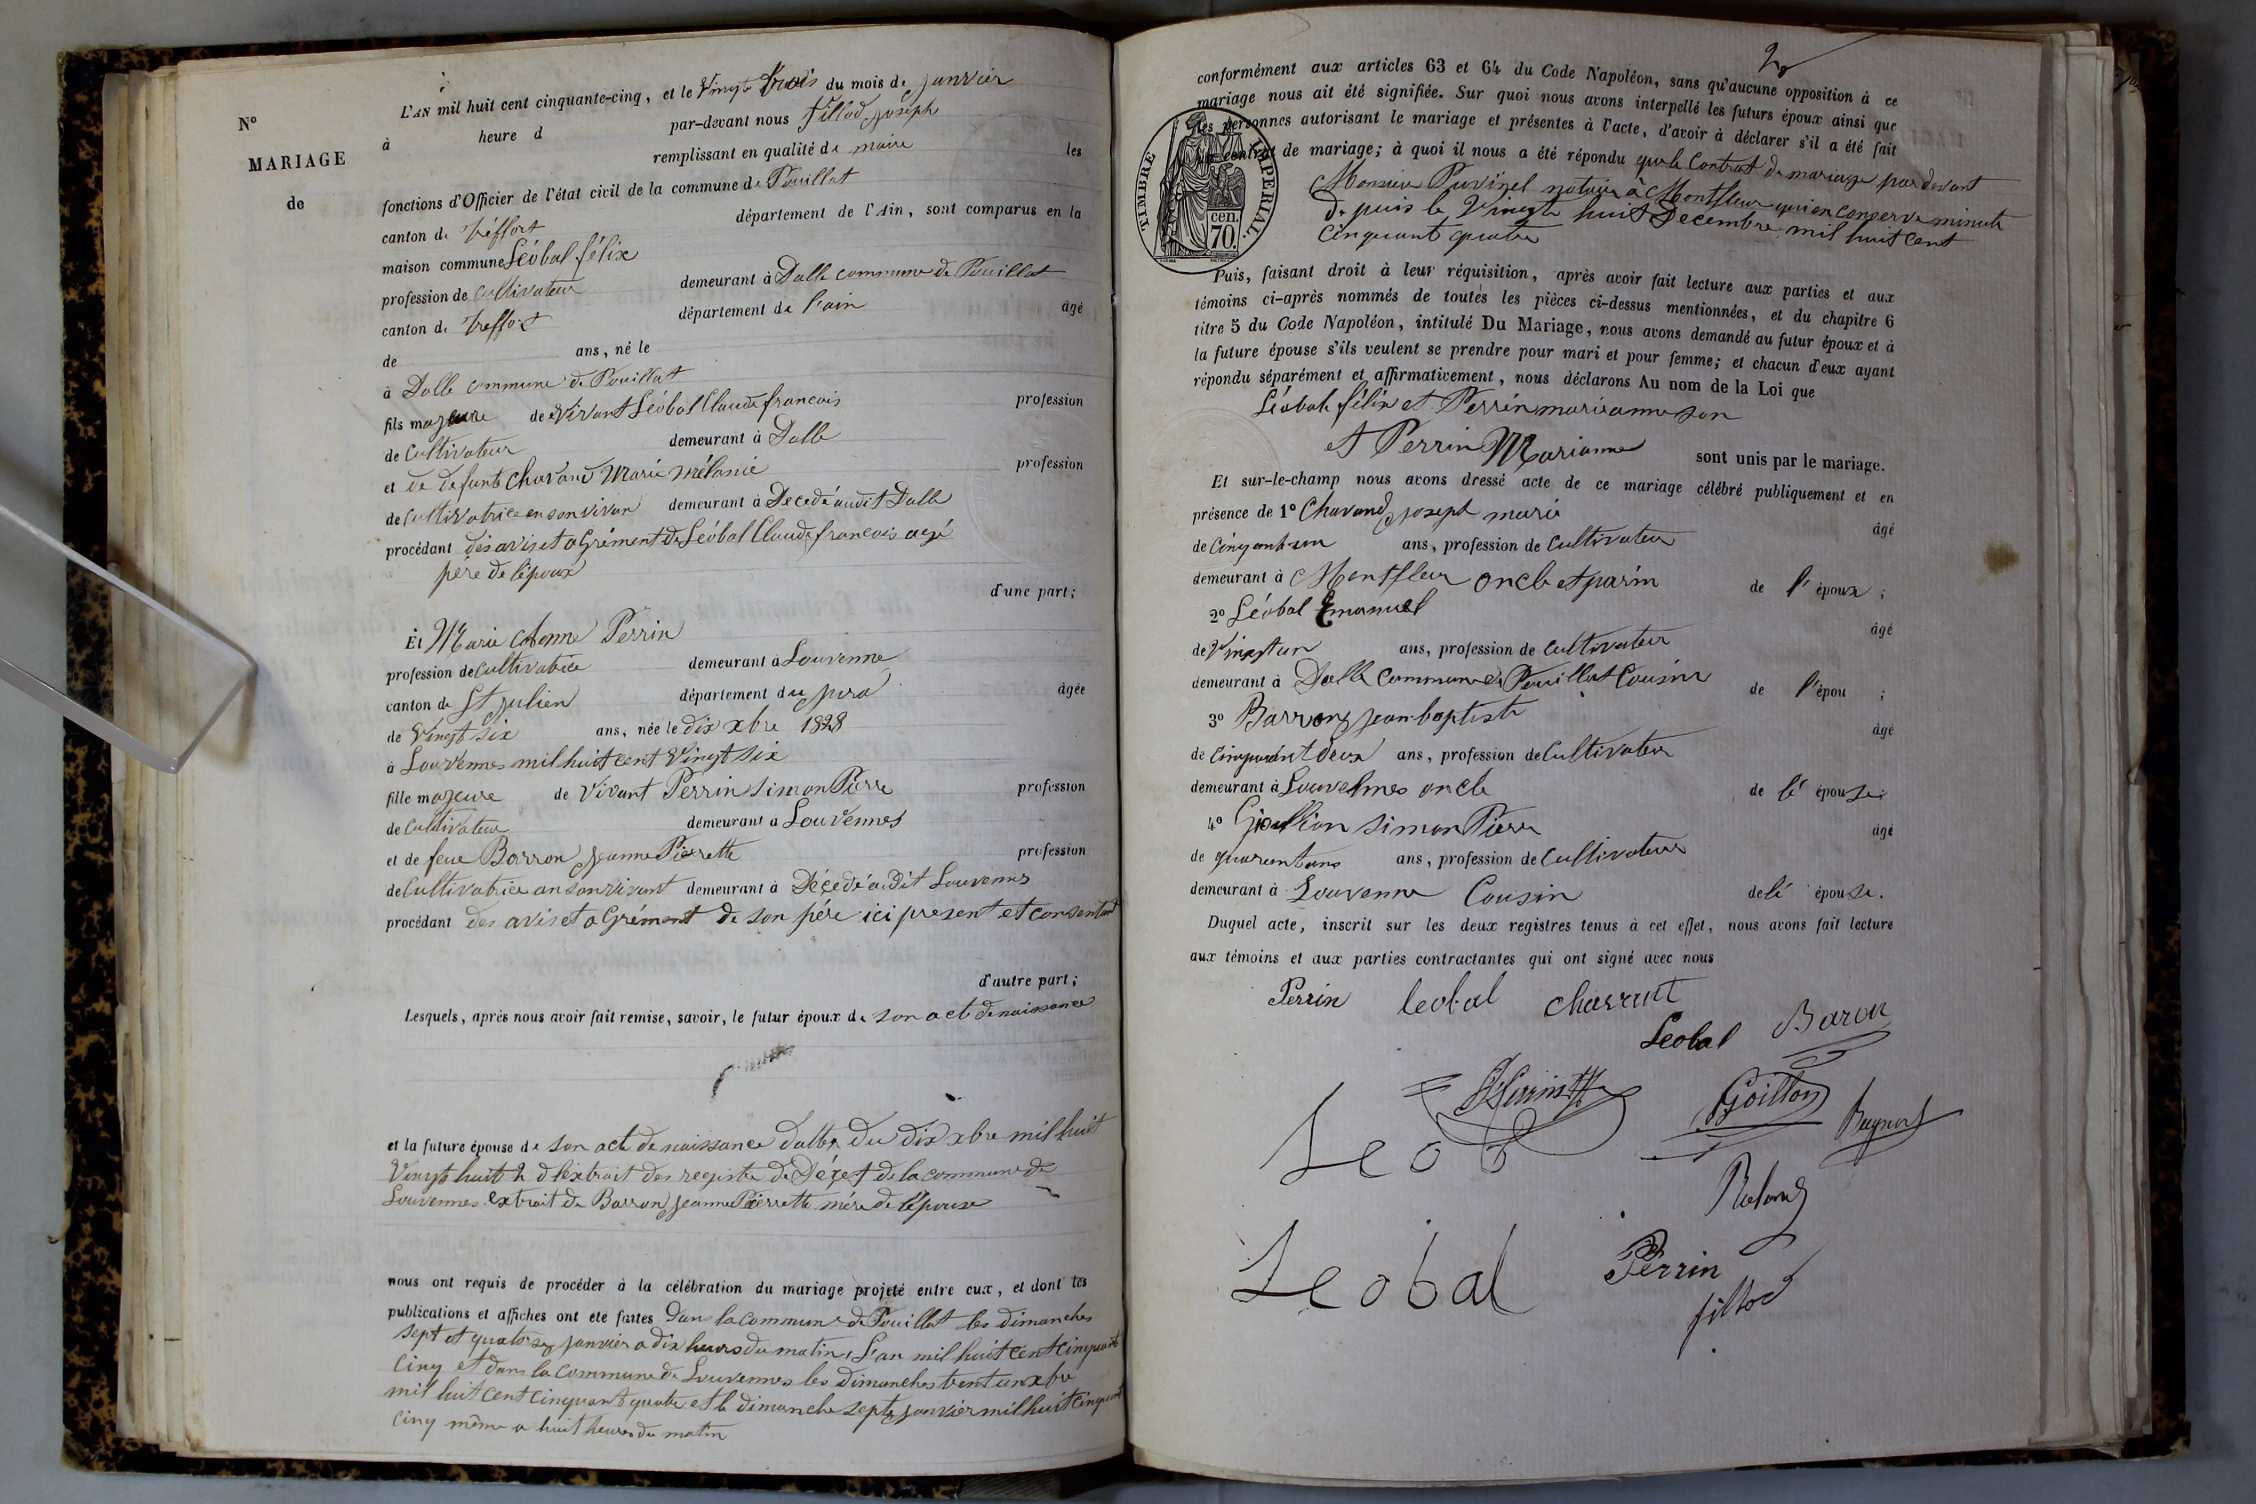 L'AN mil huit cent cinquante-cinq, et le Vingt trois du mois de janvier
N° à heure d par-devant nous fillod joseph
MARIAGE remplissant en qualité de maire les
de fonctions d'Officier de l'état civil de la commune de Pouillat
canton de tréffort département de l'Ain, sont comparus en la
maison commune Léobal félix
profession de Cultivateur demeurant à Dalle commune de Pouillat
canton de treffort département de l'ain âgé
de ans, né le
à Dalle commune de Pouillat
fils majeure de Vivant Léobal Claude francois profession
de Cultivateur demeurant à Dalle
et de defunte Chavand Marie mélanie profession
de Cultivatrice en son vivan demeurant à Decedé audit Dalle
procédant des avis et agrément de Léobal Claude francois agé
père de l'époux
d'une part;
Et Marie Perrin
profession de Cultivatrice demeurant à Louvenne
canton de St julien département du jura âgée
de Vingt six ans, née le dix xbre 1828
à Louvennes mil huit cent Vingt six
fille majeure de Vivant Perrin Simon Pierre profession
de Cultivateur demeurant à Louvennes
et de feue Barron jeanne Pierrette profession
de Cultivatrice an son vivant demeurant à Décedé audit Louvennes
procédant des avis et agrément de son père ici present et consentant
d'autre part;
Lesquels, après nous avoir fait remise, savoir, le futur époux de son act de naissance
et la future épouse de son act de naissance du dix xbre mil huit
Vingt huit d l'extrait des registre de Décet de la commune de
Louvennes extrait de Barron jeanne Pierrette mère de l'épouse
nous ont requis de procéder à la célébration du mariage projeté entre eux, et dont les
publications et affiches ont été faites Dans la commune de Pouillat les dimanches
sept et quatorze janvier a dix heures du matin, L'an mil huit cent cinquant
cinq et dans la commune de Louvennes les dimanches trent un xbre
mil huit cent cinquant quatre et le dimanche sept janvier mil huit cinquant
cinq même a huit heures du matin
2
conformément aux articles 63 et 64 du Code Napoléon, sans qu'aucune opposition à ce
mariage nous ait été signifiée. Sur quoi nous avons interpellé les futurs époux ainsi que
les personnes autorisant le mariage et présentes à l'acte, d'avoir à déclarer s'il a été fait
un contrat de mariage; à quoi il nous a été répondu que le Contrat de mariage par devant
Monsieur Puvinel notaire à Montfleur qui en conserve minute
depuis le Vingt huit Decembre mil huit cent
cinquant quatre
TIMBRE IMPERIAL
70 cen.
Puis, faisant droit à leur réquisition, après avoir fait lecture aux parties et aux
témoins ci-après nommés de toutes les pièces ci-dessus mentionnées, et du chapitre 6
titre 5 du Code Napoléon, intitulé Du Mariage, nous avons demandé au futur époux et à
la future épouse s'ils veulent se prendre pour mari et pour femme; et chacun d'eux ayant
répondu séparément et affirmativement, nous déclarons Au nom de la Loi que
Léobal félix et Perrin marianne son
et Perrin Marianne sont unis par le mariage.
Et sur-le-champ nous avons dressé acte de ce mariage célébré publiquement et en
présence de 1° Chavand joseph marie âgé
de Cinquant un ans, profession de Cultivateur
demeurant à Montfleur oncle et parin de l'époux;
2° Léobal Emanuel âgé
de Vingt un ans, profession de Cultivateur
demeurant à Dalle Commune de Pouillat Cousin de l'épou;
3° Barron jean baptiste âgé
de Cinquant deux ans, profession de Cultivateur
demeurant à Louvennes oncle de lé épouse;
4° Goillon simon Pierre âgé
de quarent ans ans, profession de Cultivateur
demeurant à Louvenne Cousin de lé épouse.
Duquel acte, inscrit sur les deux registres tenus à cet effet, nous avons fait lecture
aux témoins et aux parties contractantes qui ont signé avec nous
Perrin leobal chavant
Leobal Baron
Perrin Goillon
Leob
Leobal Perrin
fillod